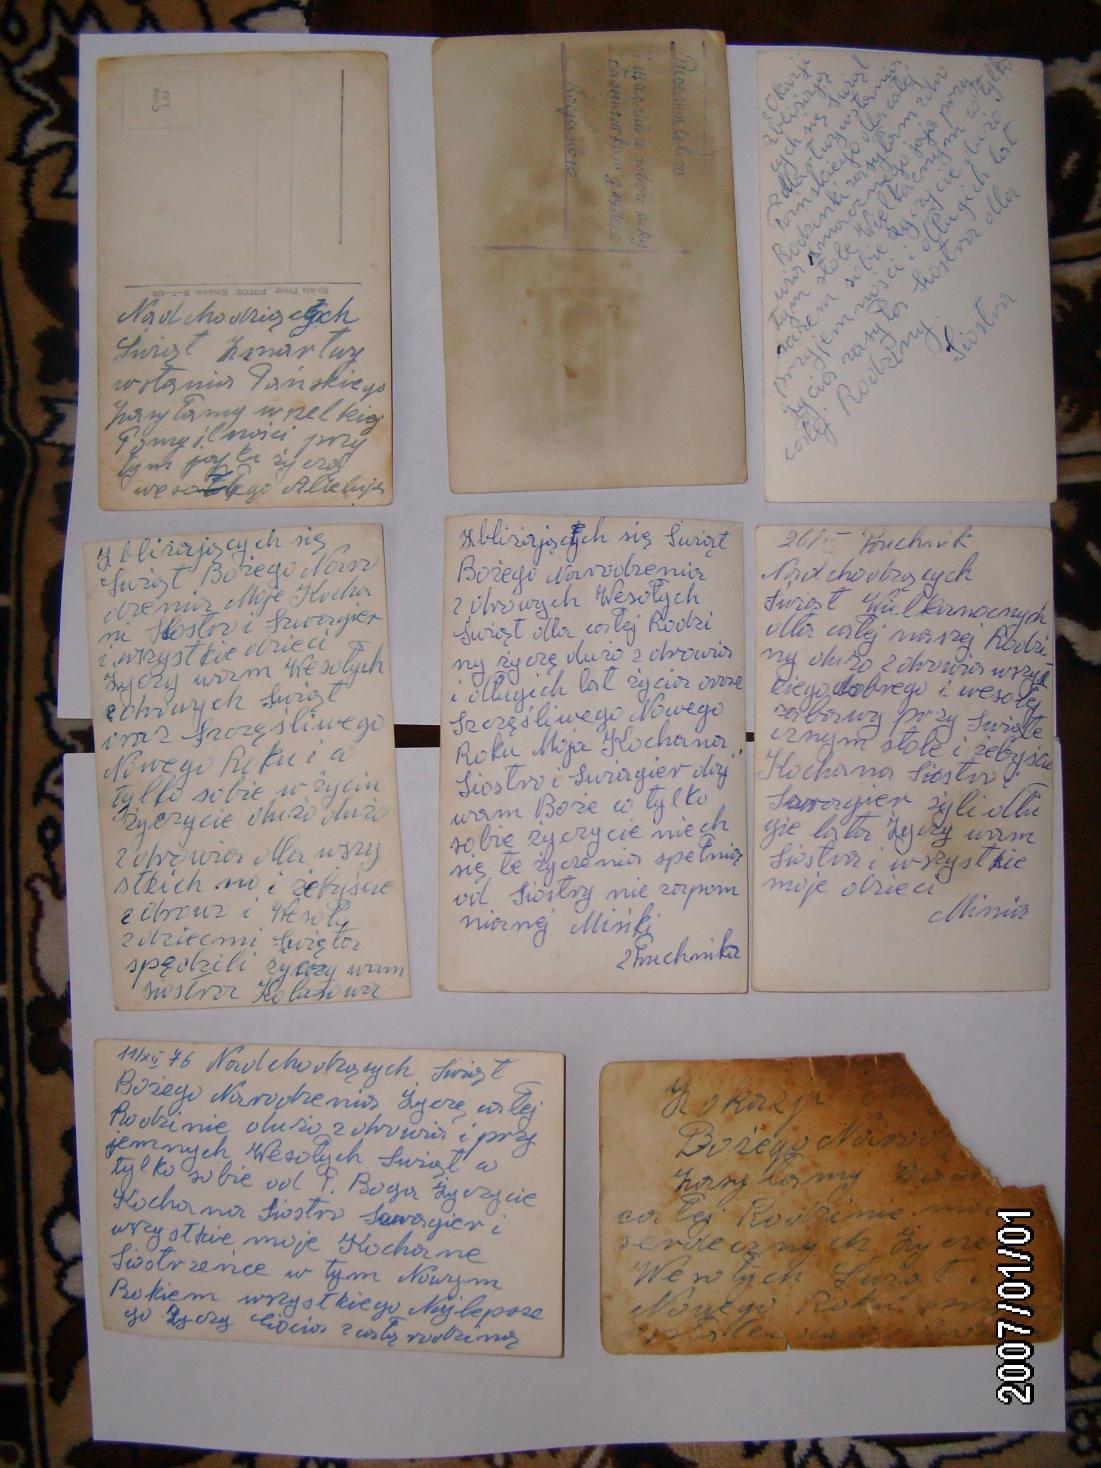 Cena
Nadchodzących
Świąt Zmartwy
wstania Pańskiego
zasyłamy wszelkiej
Pomyślności przy
tym jajku życzą
wesołego Alleluja
Z Okazji
zbliżają
cych się Świąt
Zmartwychwstania
Pańskiego dla całej
Rodzinki zasyłam zdro
wia smacznego jaja przy
tym stole Wielkanocnym co tylko
razem sobie życzycie dużo
przyjemności i długich lat
życia zasyła Siostra dla
całej Rodziny.
Siostra
Zbliżających się
Świąt Bożego Naro
dzenia Moje Kocha
ni Siostro i Szwagier
i wszystkie dzieci
życzy wam Wesołych
zdrowych Świąt
oraz Szczęśliwego
Nowego Roku i co
tylko sobie w życiu
życzycie dużo dużo
zdrowia dla wszy
stkich no i żebyście
zdrowi i Weseli
z dziećmi Święta
spędzili życzy wam
siostra Kolasowa
Zbliżających się Świąt
Bożego Narodzenia
zdrowych Wesołych
Świąt dla całej Rodzi
ny życzę dużo zdrowia
i długich lat życia oraz
Szczęśliwego Nowego
Roku Moja Kochana
Siostro i Szwagier daj
wam Boże co tylko
sobie życzycie niech
się te życzenia spełnią
od Siostry nie zapom
nianej Miński
z Pruchnika
26/III Pruchnik
Nadchodzących
Świąt Wielkanocnych
dla całej naszej Rodzi
ny dużo zdrowia wszyst
kiego dobrego i wesołej
zabawy przy Świąte
cznym stole i żebyście
Kochana Siostro i
Szwagier żyli dłu
gie lata życzy wam
Siostra i wszystkie
moje dzieci
Minia
11/XII 76 Nadchodzących Świąt
Bożego Narodzenia życzę całej
Rodzinie dużo zdrowia i przy
jemnych Wesołych Świąt co
tylko sobie od P. Boga życzycie
Kochana Siostro Szwagier i
wszystkie moje Kochane
Siostrzeńce w tym Nowym
Rokiem wszystkiego Najlepsze
go życzy Ciocia z całą rodziną
Z okazji
Bożego Narod
zasyłamy Wam
całej Rodzinie moc
serdecznych życzeń
Wesołych Świąt i
Nowego Roku
2007/01/01